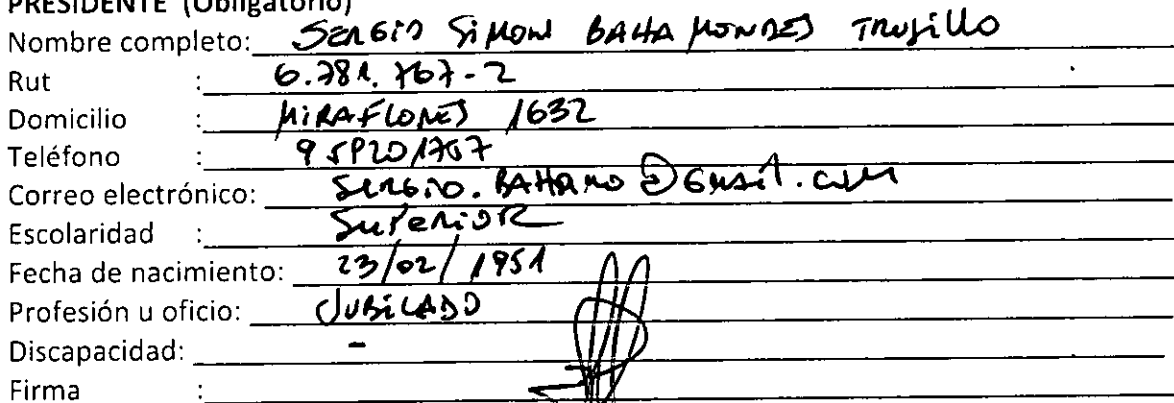 PRESIDENTE (Obligatorio)
Nombre completo: SERGIO SIMON BAHAMONDES TRUJILLO
Rut : 6.781.767-2
Domicilio : MIRAFLORES 1632
Teléfono :
Correo electrónico: SERGIO.BAHAMO@GMAIL.COM
Escolaridad : SUPERIOR
Fecha de nacimiento: 23/02/1951
Profesión u oficio: JUBILADO
Discapacidad: -
Firma :